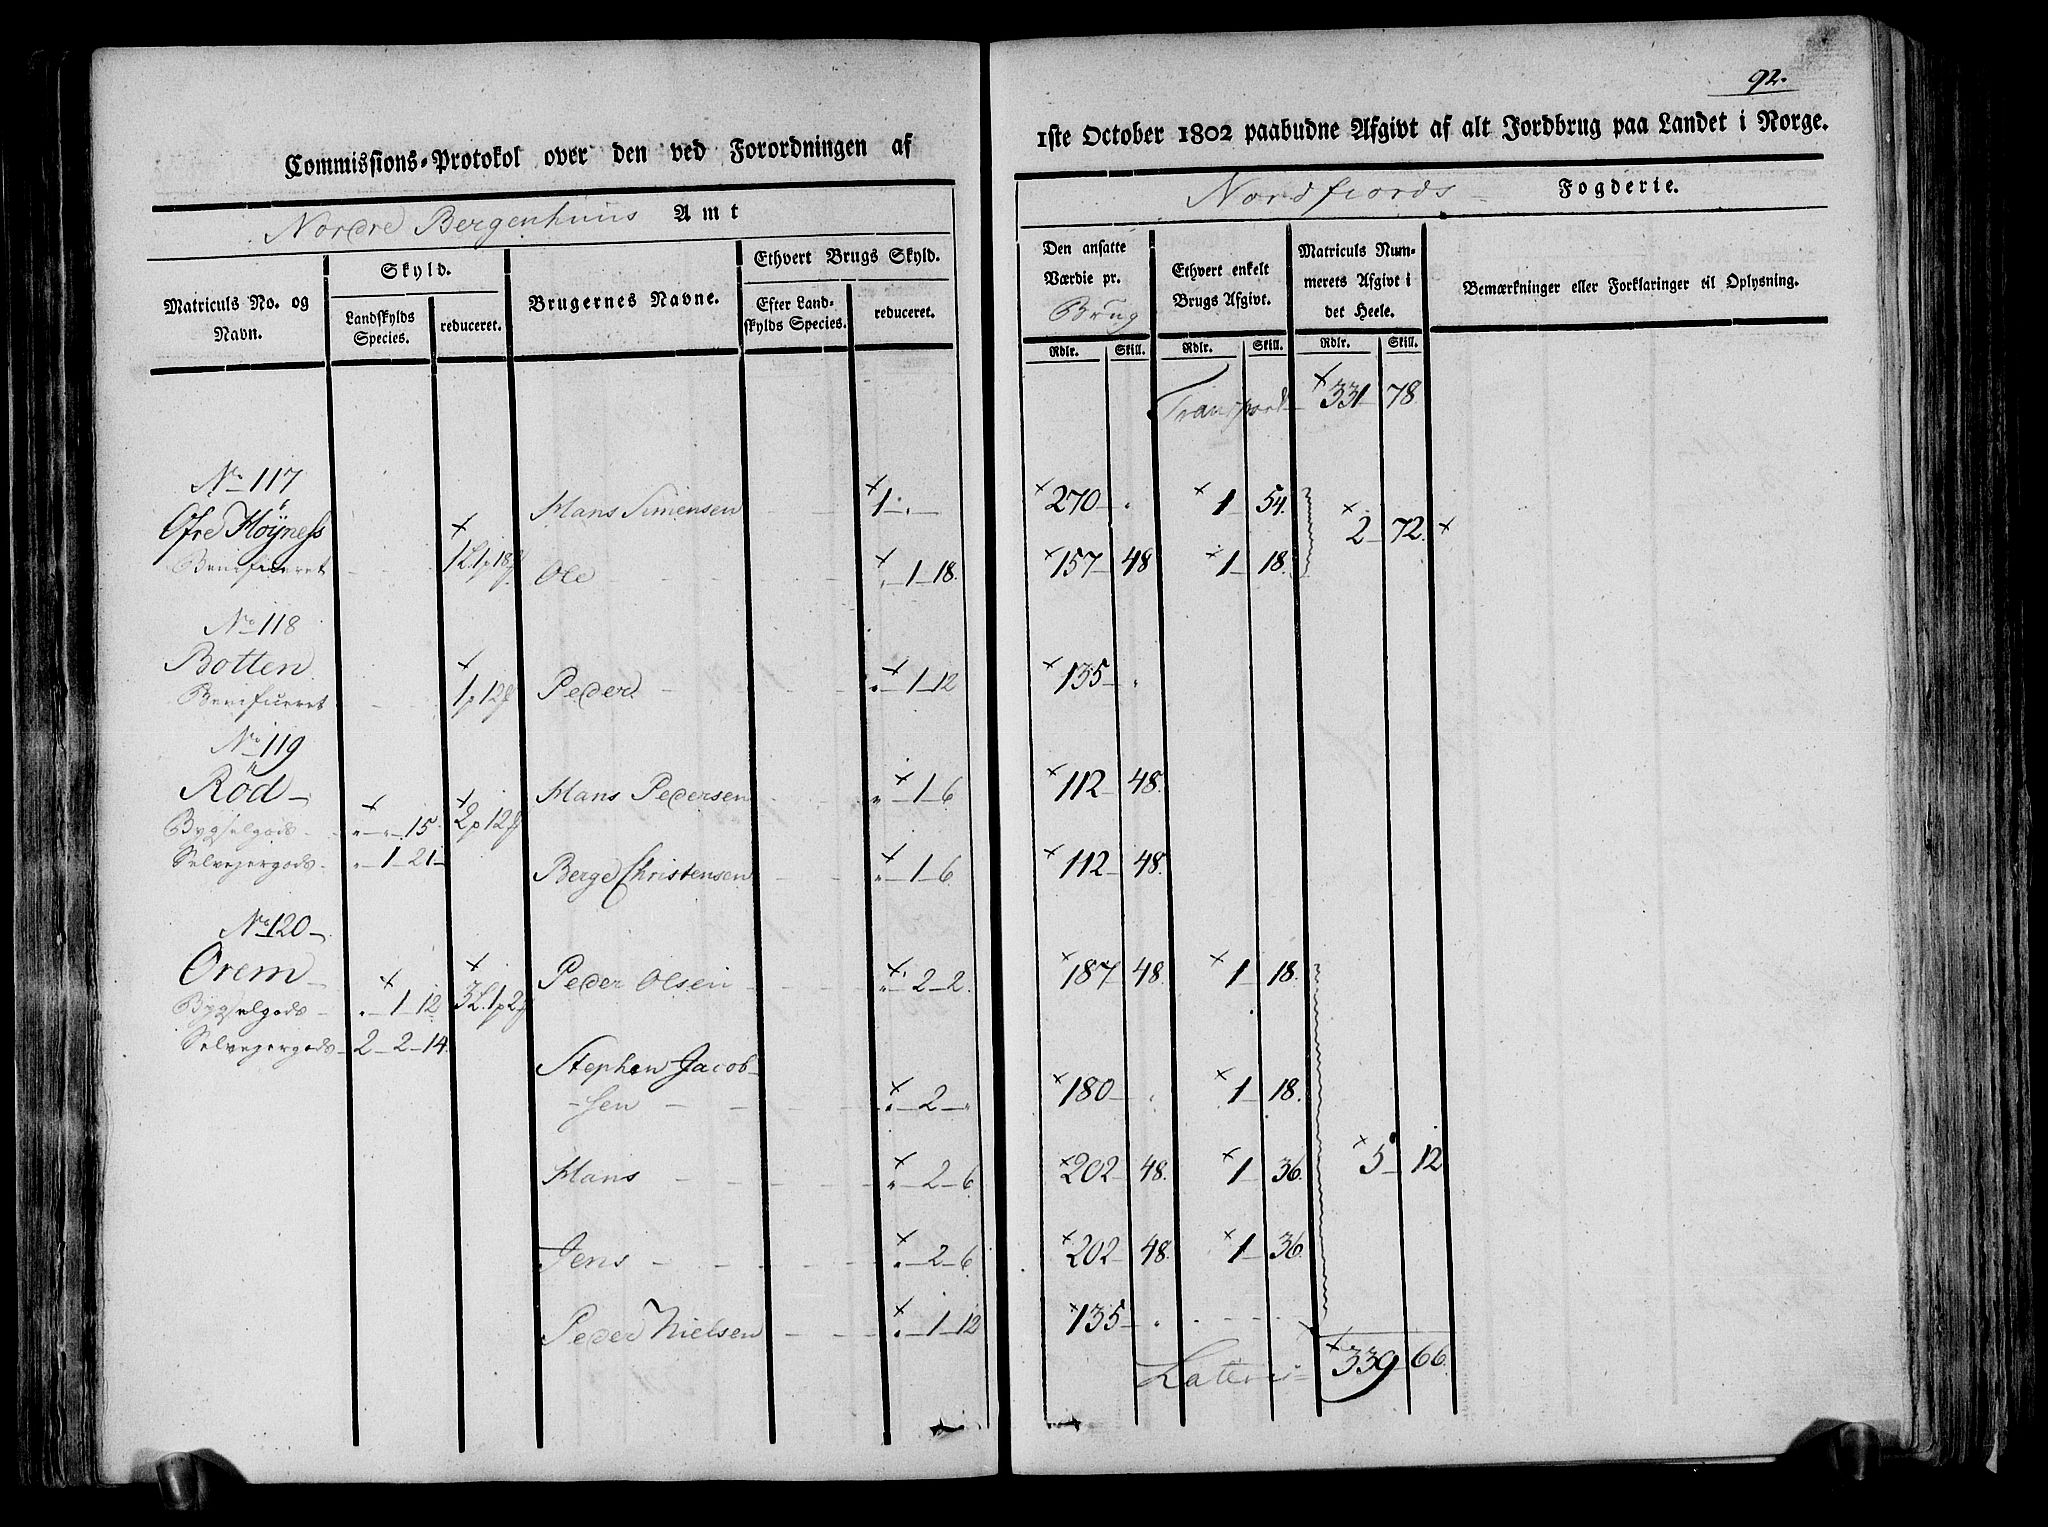 92.
Commissions-Protokol over den ved Forordningen af
1ste October 1802 paabudne Afgivt af alt Jordbrug paa Landet i Norge.
Nordre Bergenhuus Amt
Nordfiords Fogderie.
Matriculs No. og Navn.
Skyld.
Landskylds Species.
reduceret.
Brugernes Navne.
Ethvert Brugs Skyld.
Efter Landskylds Species.
reduceret.
Den ansatte Værdie pr. Brug
Ethvert enkelt Brugs Afgivt.
Matriculs Nummerets Afgivt i det Heele.
Bemærkninger eller Forklaringer til Oplysning.
Rdlr. Skill. Rdlr. Skill. Rdlr. Skill.
Transport × 331 78
No 117
Øfre Höyness Hans Simensen × 1 - . - × 270 - . × 1 54. × 2 72. ×
Benificeret × 1L. 1p 18f Ole × . - 1 - 18. × 157 48 × 1 18.
No 118
Botten
Benificeret × 1p 12f Peder × . - 1 - 12 × 135 - .
No 119
Röd - Hans Pedersen × " - 1 - 6 × 112 - 48.
Bygselgods × " - " - 15. × 2p 12f
Selvejergods . - 1 - 21 - Berge Christensen × " - 1 - 6 × 112 - 48.
No 120 -
Orem - Peder Olsen × " - 2 - 2. × 187 - 48. × 1 18.
Bygselgods - × . - 1 - 12 × 3L. 1p 2f
Selvejergods - 2 - 2 - 14.
Stephen Jacob-
-sen × . - 2 - " × 180 - . × 1 18.
Hans × " - 2 - 6 × 202 - 48. × 1 36. × 5 - 12
Jens × . - 2 - 6 × 202 - 48. × 1 36
Peder Nielsen × . - 1 - 12 × 135 - .
Lateri = × 339 66.